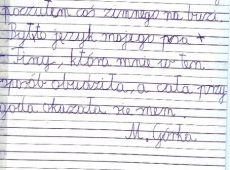 poczułam coś zimnego na buzi.
Był to język mojego psa
która mnie w ten
sposób obudziła, a cała przy
goda okazała się snem.
M. Górka